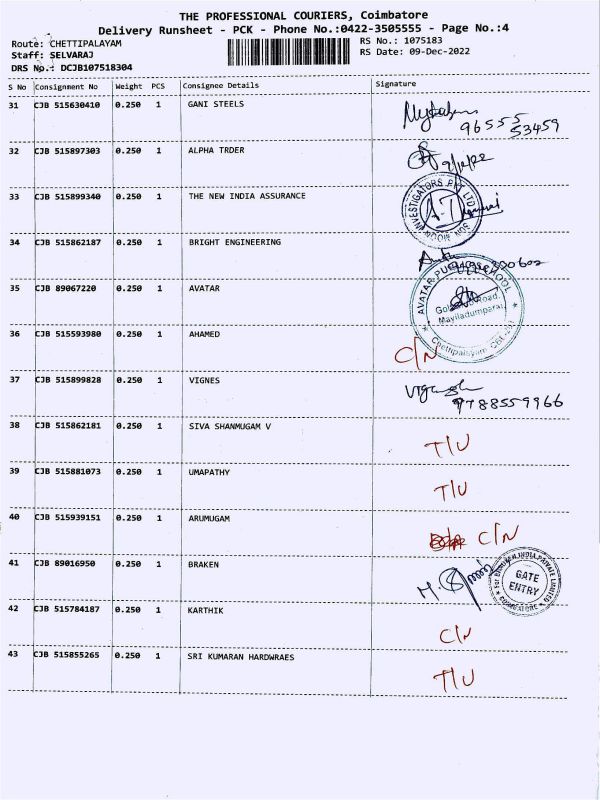 THE PROFESSIONAL COURIERS, Coimbatore
Delivery Runsheet - PCK - Phone No.:0422-3505555 - Page No.:4
Route: CHETTIPALAYAM
RS No.: 1075183
Staff: SELVARAJ
RS Date: 09-Dec-2022
DRS No.: DCJB107518304
S No Consignment No Weight PCS Consignee Details Signature
31 CJB 515630410 0.250 1 GANI STEELS
96555 53459
32 CJB 515897303 0.250 1 ALPHA TRDER
33 CJB 515899340 0.250 1 THE NEW INDIA ASSURANCE
INVESTIGATORS PVT LTD
34 CJB 515862187 0.250 1 BRIGHT ENGINEERING
35 CJB 89067220 0.250 1 AVATAR
AVATAR PUBLIC SCHOOL
Road,
Mayiladumparai
Chettipalayam
36 CJB 515593980 0.250 1 AHAMED C/N
37 CJB 515899828 0.250 1 VIGNES
9788559966
38 CJB 515862181 0.250 1 SIVA SHANMUGAM V T/U
39 CJB 515881073 0.250 1 UMAPATHY T/U
40 CJB 515939151 0.250 1 ARUMUGAM C/N
41 CJB 89016950 0.250 1 BRAKEN
INDIA PRIVATE LIMITED
GATE
ENTRY
COIMBATORE
42 CJB 515784187 0.250 1 KARTHIK C/N
43 CJB 515855265 0.250 1 SRI KUMARAN HARDWRAES T/U